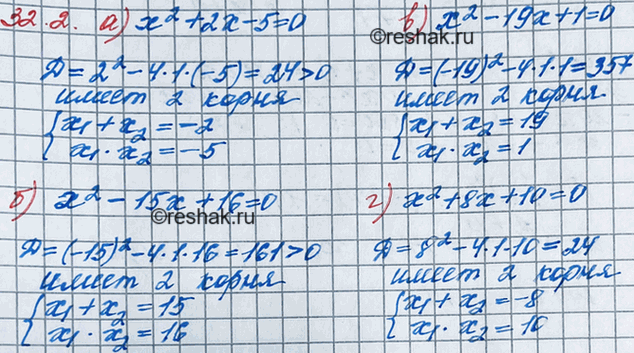 32.2. а) x² + 2x - 5 = 0
Д = 2² - 4·1·(-5) = 24 > 0
имеет 2 корня
{ x₁ + x₂ = -2
x₁ · x₂ = -5
б) x² - 15x + 16 = 0
©reshak.ru
Д = (-15)² - 4·1·16 = 161 > 0
имеет 2 корня
{ x₁ + x₂ = 15
x₁ · x₂ = 16
в) x² - 19x + 1 = 0
©reshak.ru
Д = (-19)² - 4·1·1 = 357
имеет 2 корня
{ x₁ + x₂ = 19
x₁ · x₂ = 1
г) x² + 8x + 10 = 0
Д = 8² - 4·1·10 = 24
имеет 2 корня
{ x₁ + x₂ = -8
x₁ · x₂ = 10